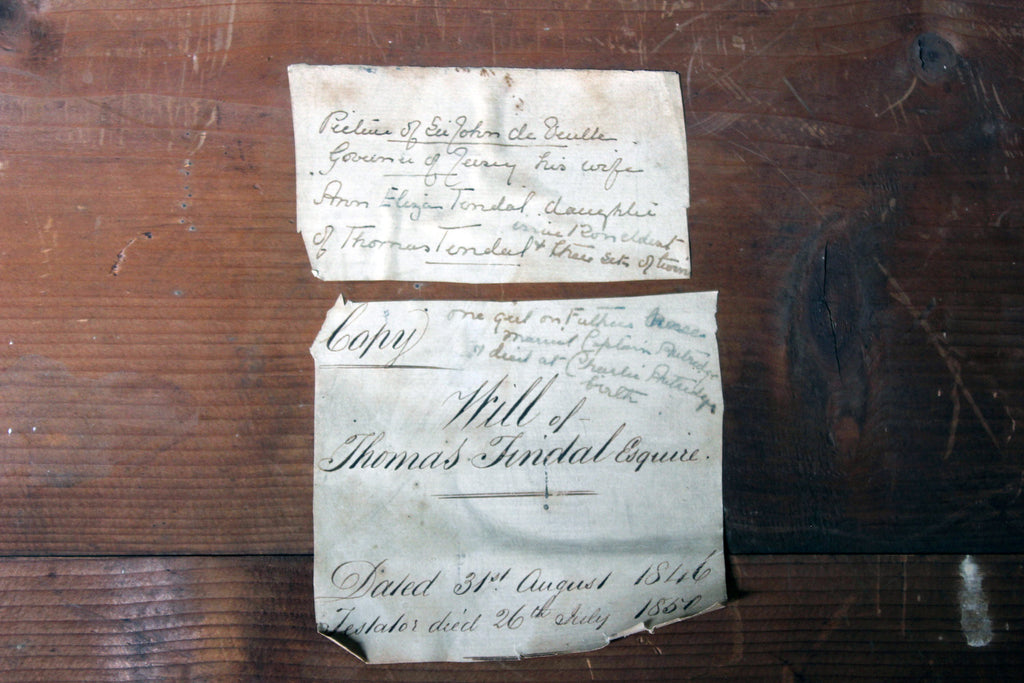 Picture of Sir John de Veulle
Governor of Jersey his wife
Ann Eliza Tindal daughter
of Thomas Tindal & three sets of twins
Copy
one girl on Fathers
married Captain
& died at Charlie
birth
Will of
Thomas Tindal Esquire.
Dated 31st. August 1846
Testator died 26th July 1850